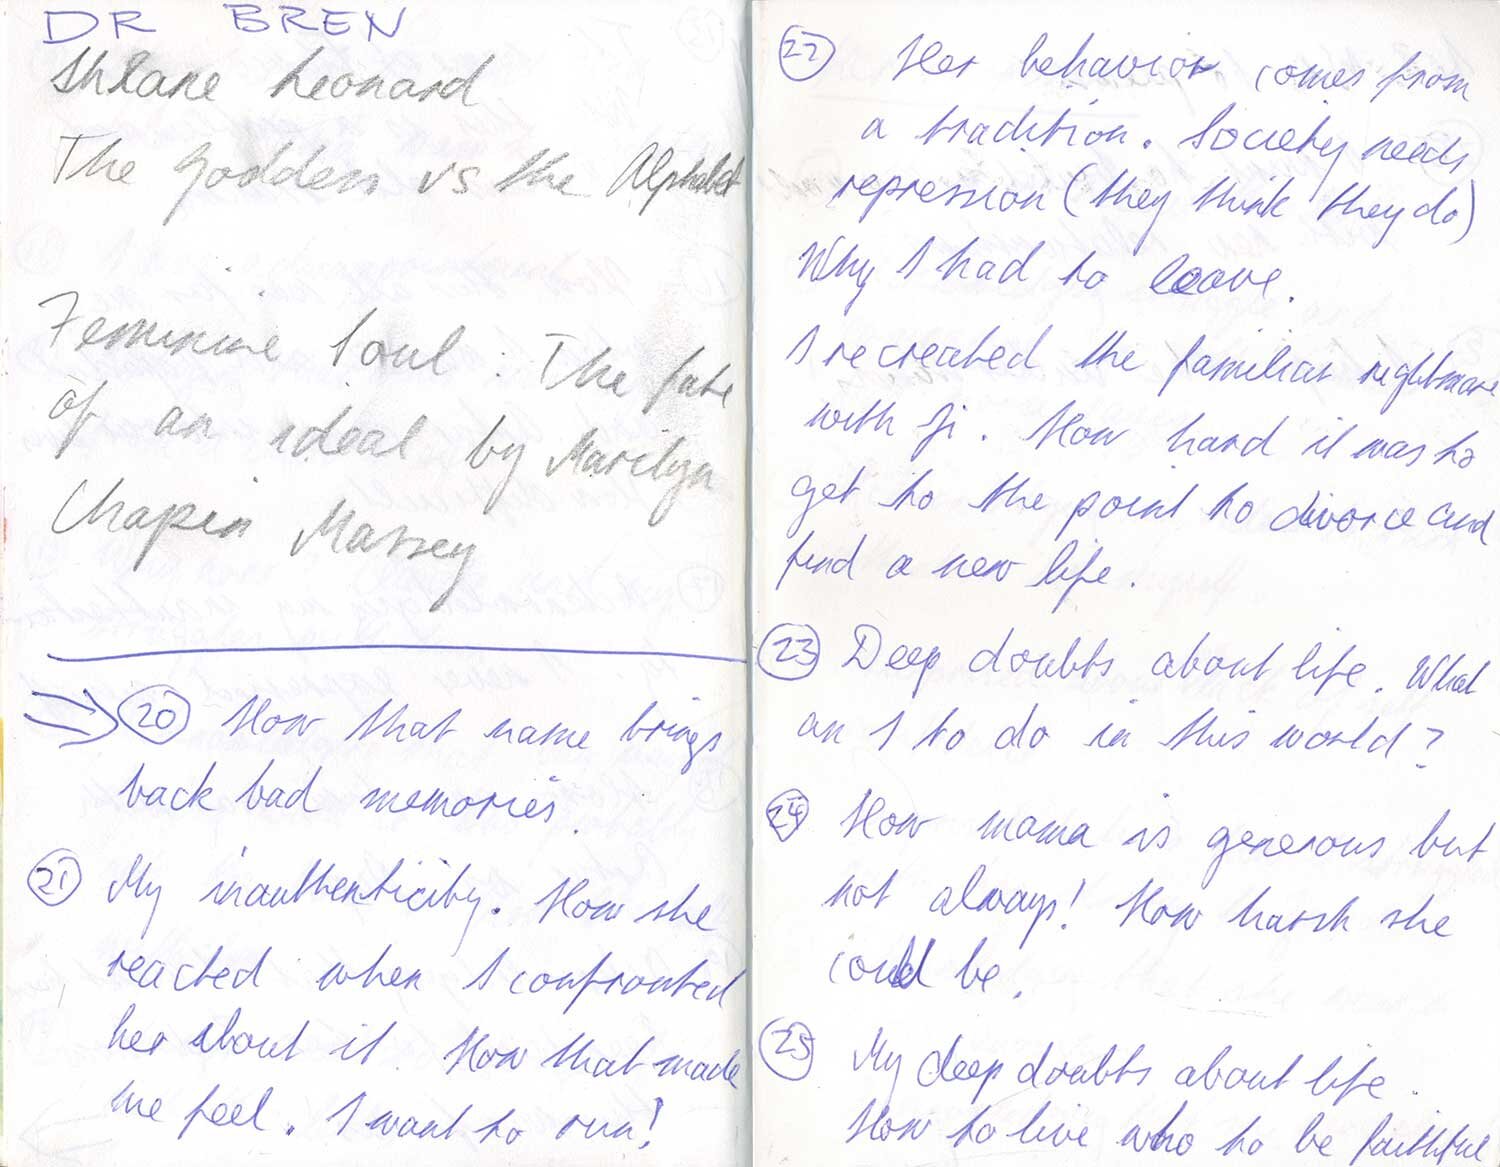 DR BREN
Shlane Leonard
The Goddess vs the Alphabet
Feminine Soul: The fate
of an ideal by Marilyn
Chapin Massey
20 How that name brings
back bad memories.
21 My inauthenticity. How she
reacted when I confronted
her about it. How that made
me feel. I want to run!
22 Her behavior comes from
a tradition. Society needs
repression (they think they do)
Why I had to leave.
I recreated the familiar nightmare
with Ji. How hard it was to
get to the point to divorce and
find a new life.
23 Deep doubts about life. What
am I to do in this world?
24 How mama is generous but
not always! How harsh she
could be.
25 My deep doubts about life.
How to live who to be faithful